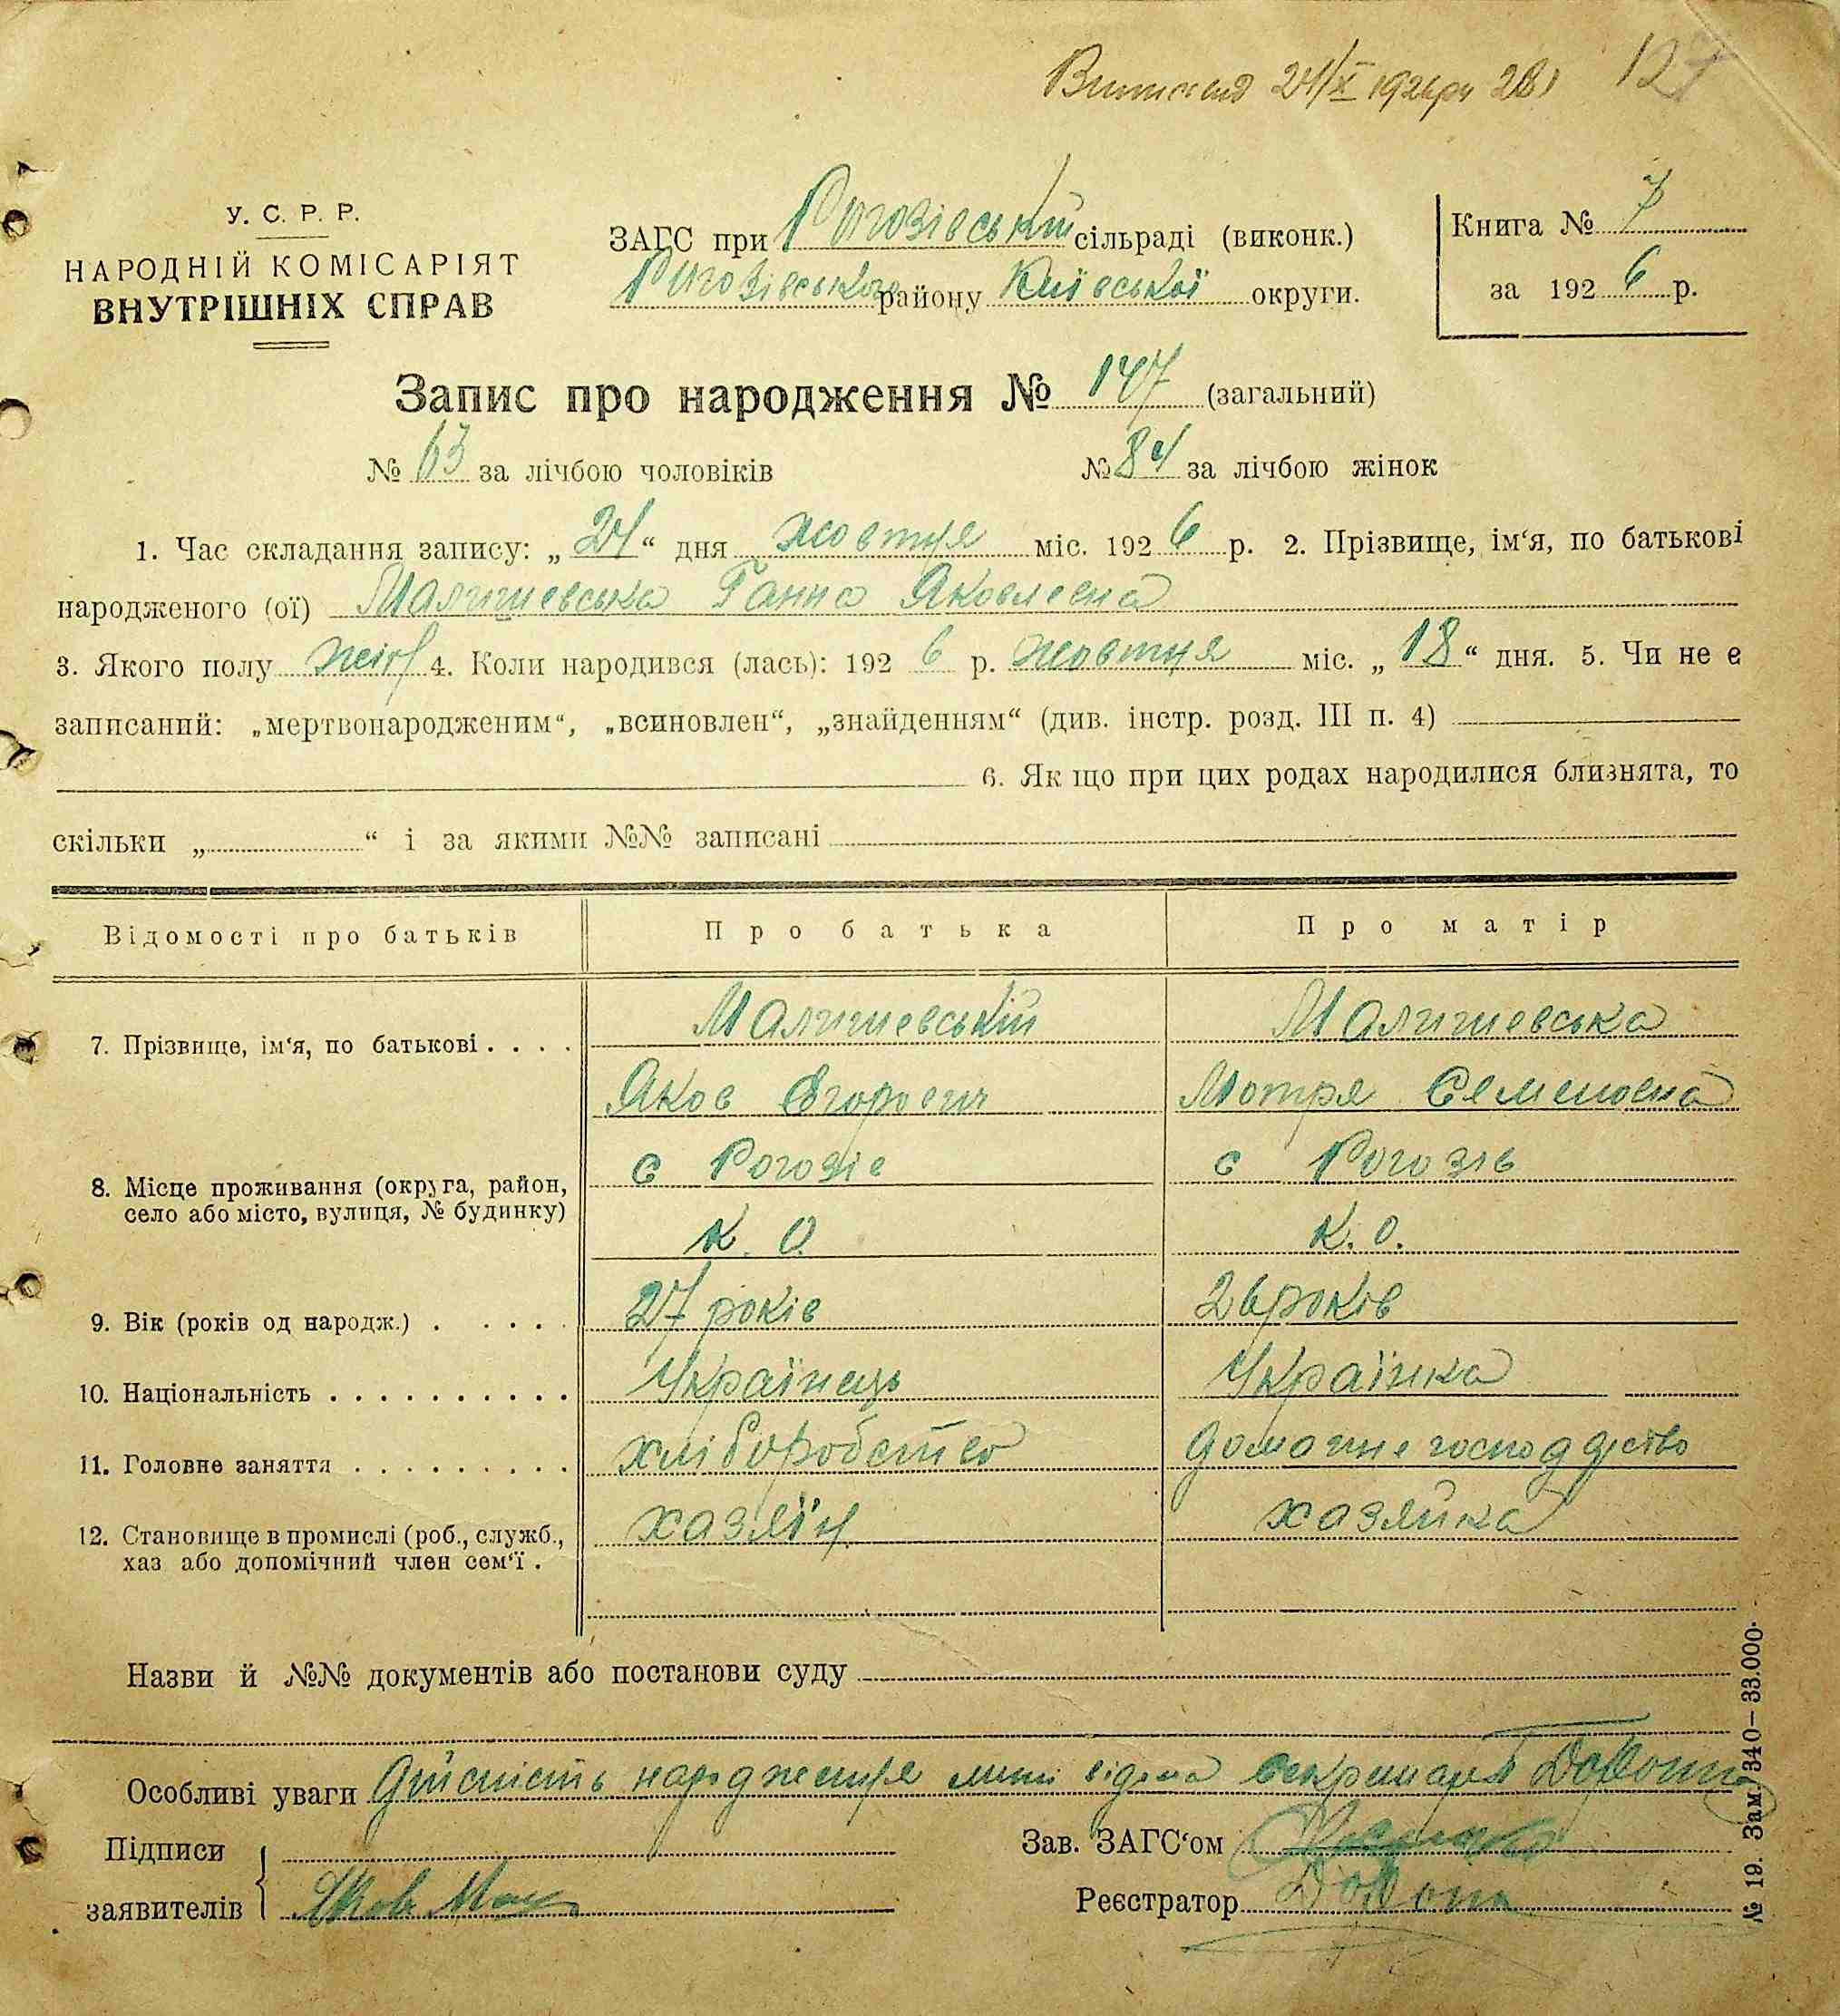 24/X 192 р 127
У. С. Р. Р.
НАРОДНІЙ КОМІСАРІЯТ
ВНУТРІШНІХ СПРАВ
ЗАГС при Рогозівській сільраді (виконк.)
Рогозівського району Київської округи.
Книга № 7
за 1926 р.
Запис про народження № 147 (загальний)
№ 63 за лічбою чоловіків № 84 за лічбою жінок
1. Час складання запису: „24“ дня жовтня міс. 1926 р. 2. Прізвище, ім‘я, по батькові
народженого (ої) Малишевська Ганна Яковлевна
3. Якого полу жін 4. Коли народився (лась): 1926 р. жовтня міс. „18“ дня. 5. Чи не є
записаний: „мертвонародженим“, „всиновлен“, „знайденням“ (див. інстр. розд. III п. 4)
6. Як що при цих родах народилися близнята, то
скільки „ “ і за якими №№ записані
Відомості про батьків Про батька Про матір
7. Прізвище, ім‘я, по батькові . . . . Малишевський Малишевська
Яков Єгорович Мотря Семеновна
8. Місце проживання (округа, район, село або місто, вулиця, № будинку) с Рогозів с Рогозів
К. О. К. О.
9. Вік (років од народж.) . . . . . 27 років 26 років
10. Національність . . . . . . . . . . Українець Українка
11. Головне заняття . . . . . . . . . хліборобство домашнє господдрство
12. Становище в промислі (роб., служб., хаз або допомічний член сем‘ї . хазяїн хазяйка
Назви й №№ документів або постанови суду
Особливі уваги Дійсність народження мині відома
Підписи
заявителів Яков
Зав. ЗАГС‘ом
Реєстратор
№ 19. Зам. 340—33.000.